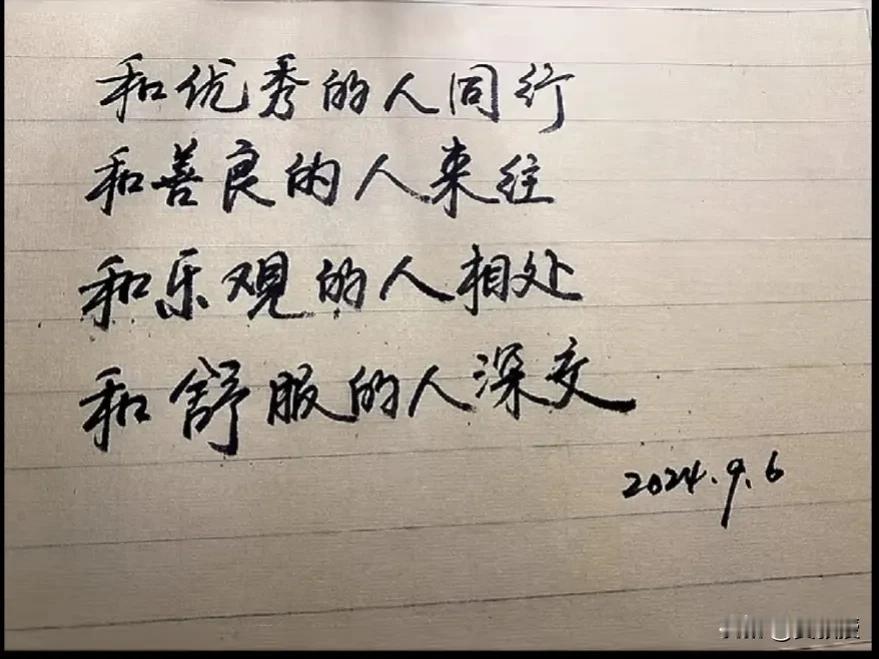 和优秀的人同行
和善良的人来往
和乐观的人相处
和舒服的人深交
2024.9.6